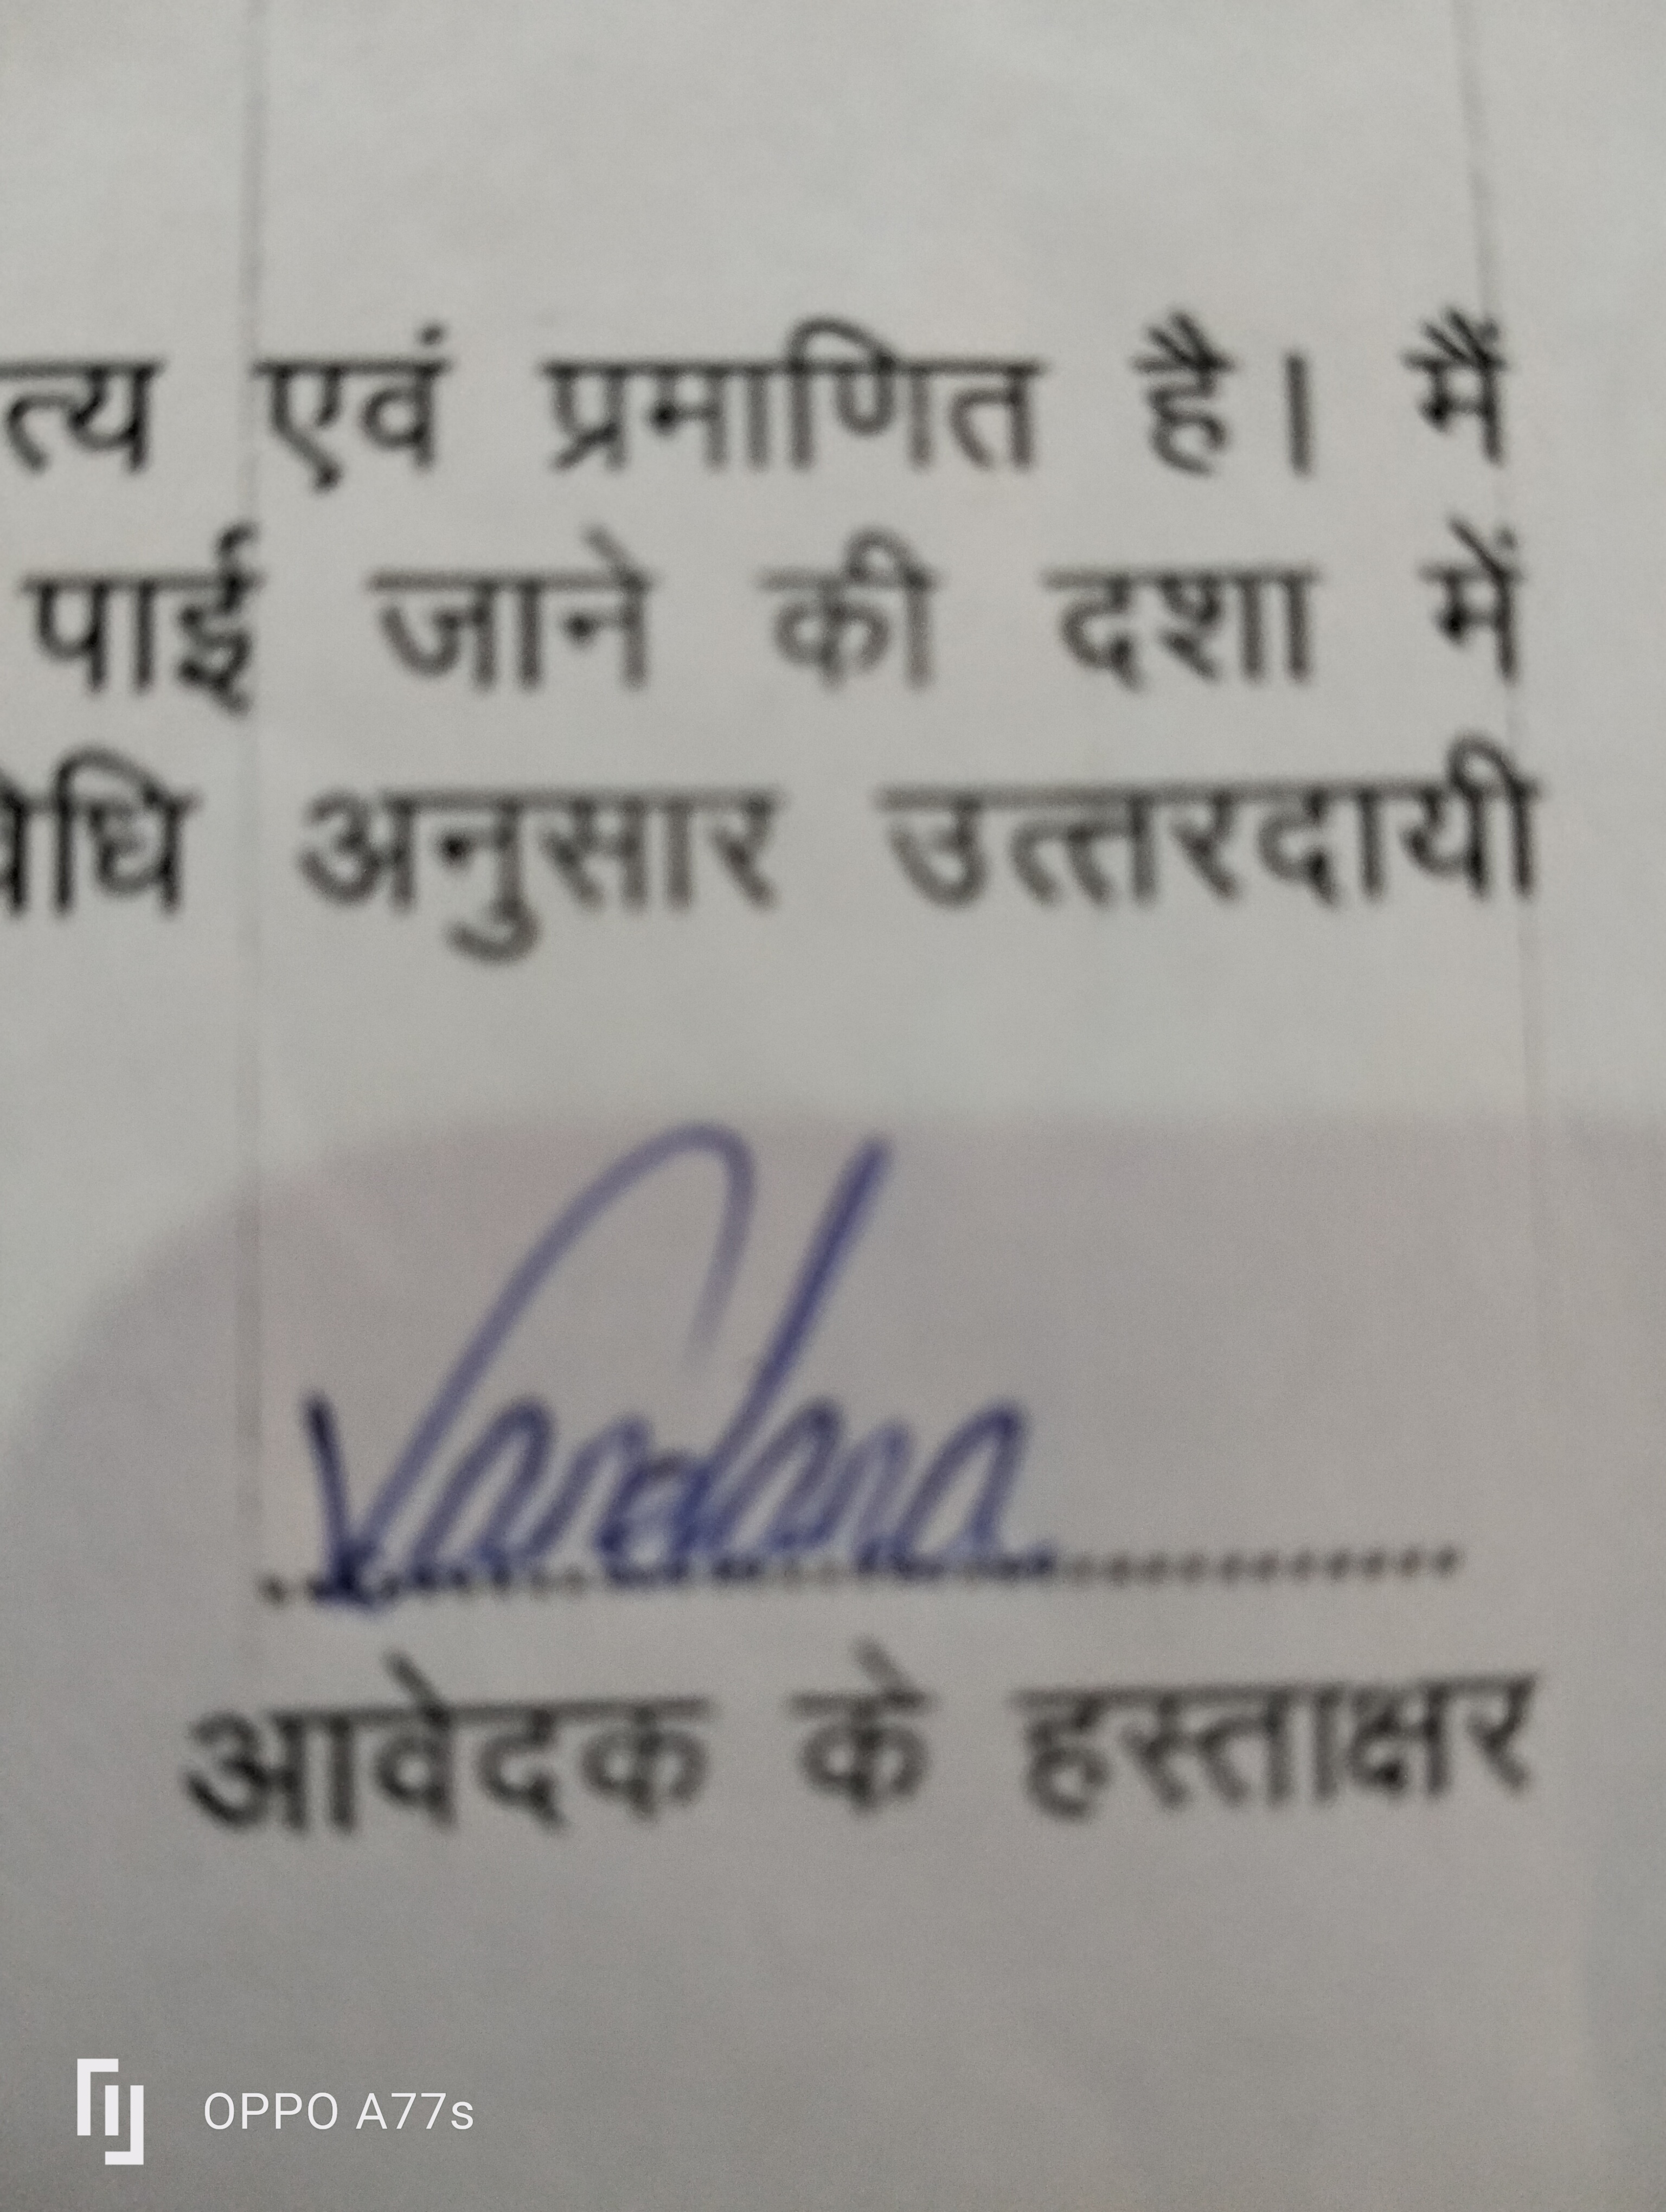 त्य एवं प्रमाणित है। मैं
पाई जाने की दशा में
अनुसार उत्तरदायी
Vandana
आवेदक के हस्ताक्षर
OPPO A77s